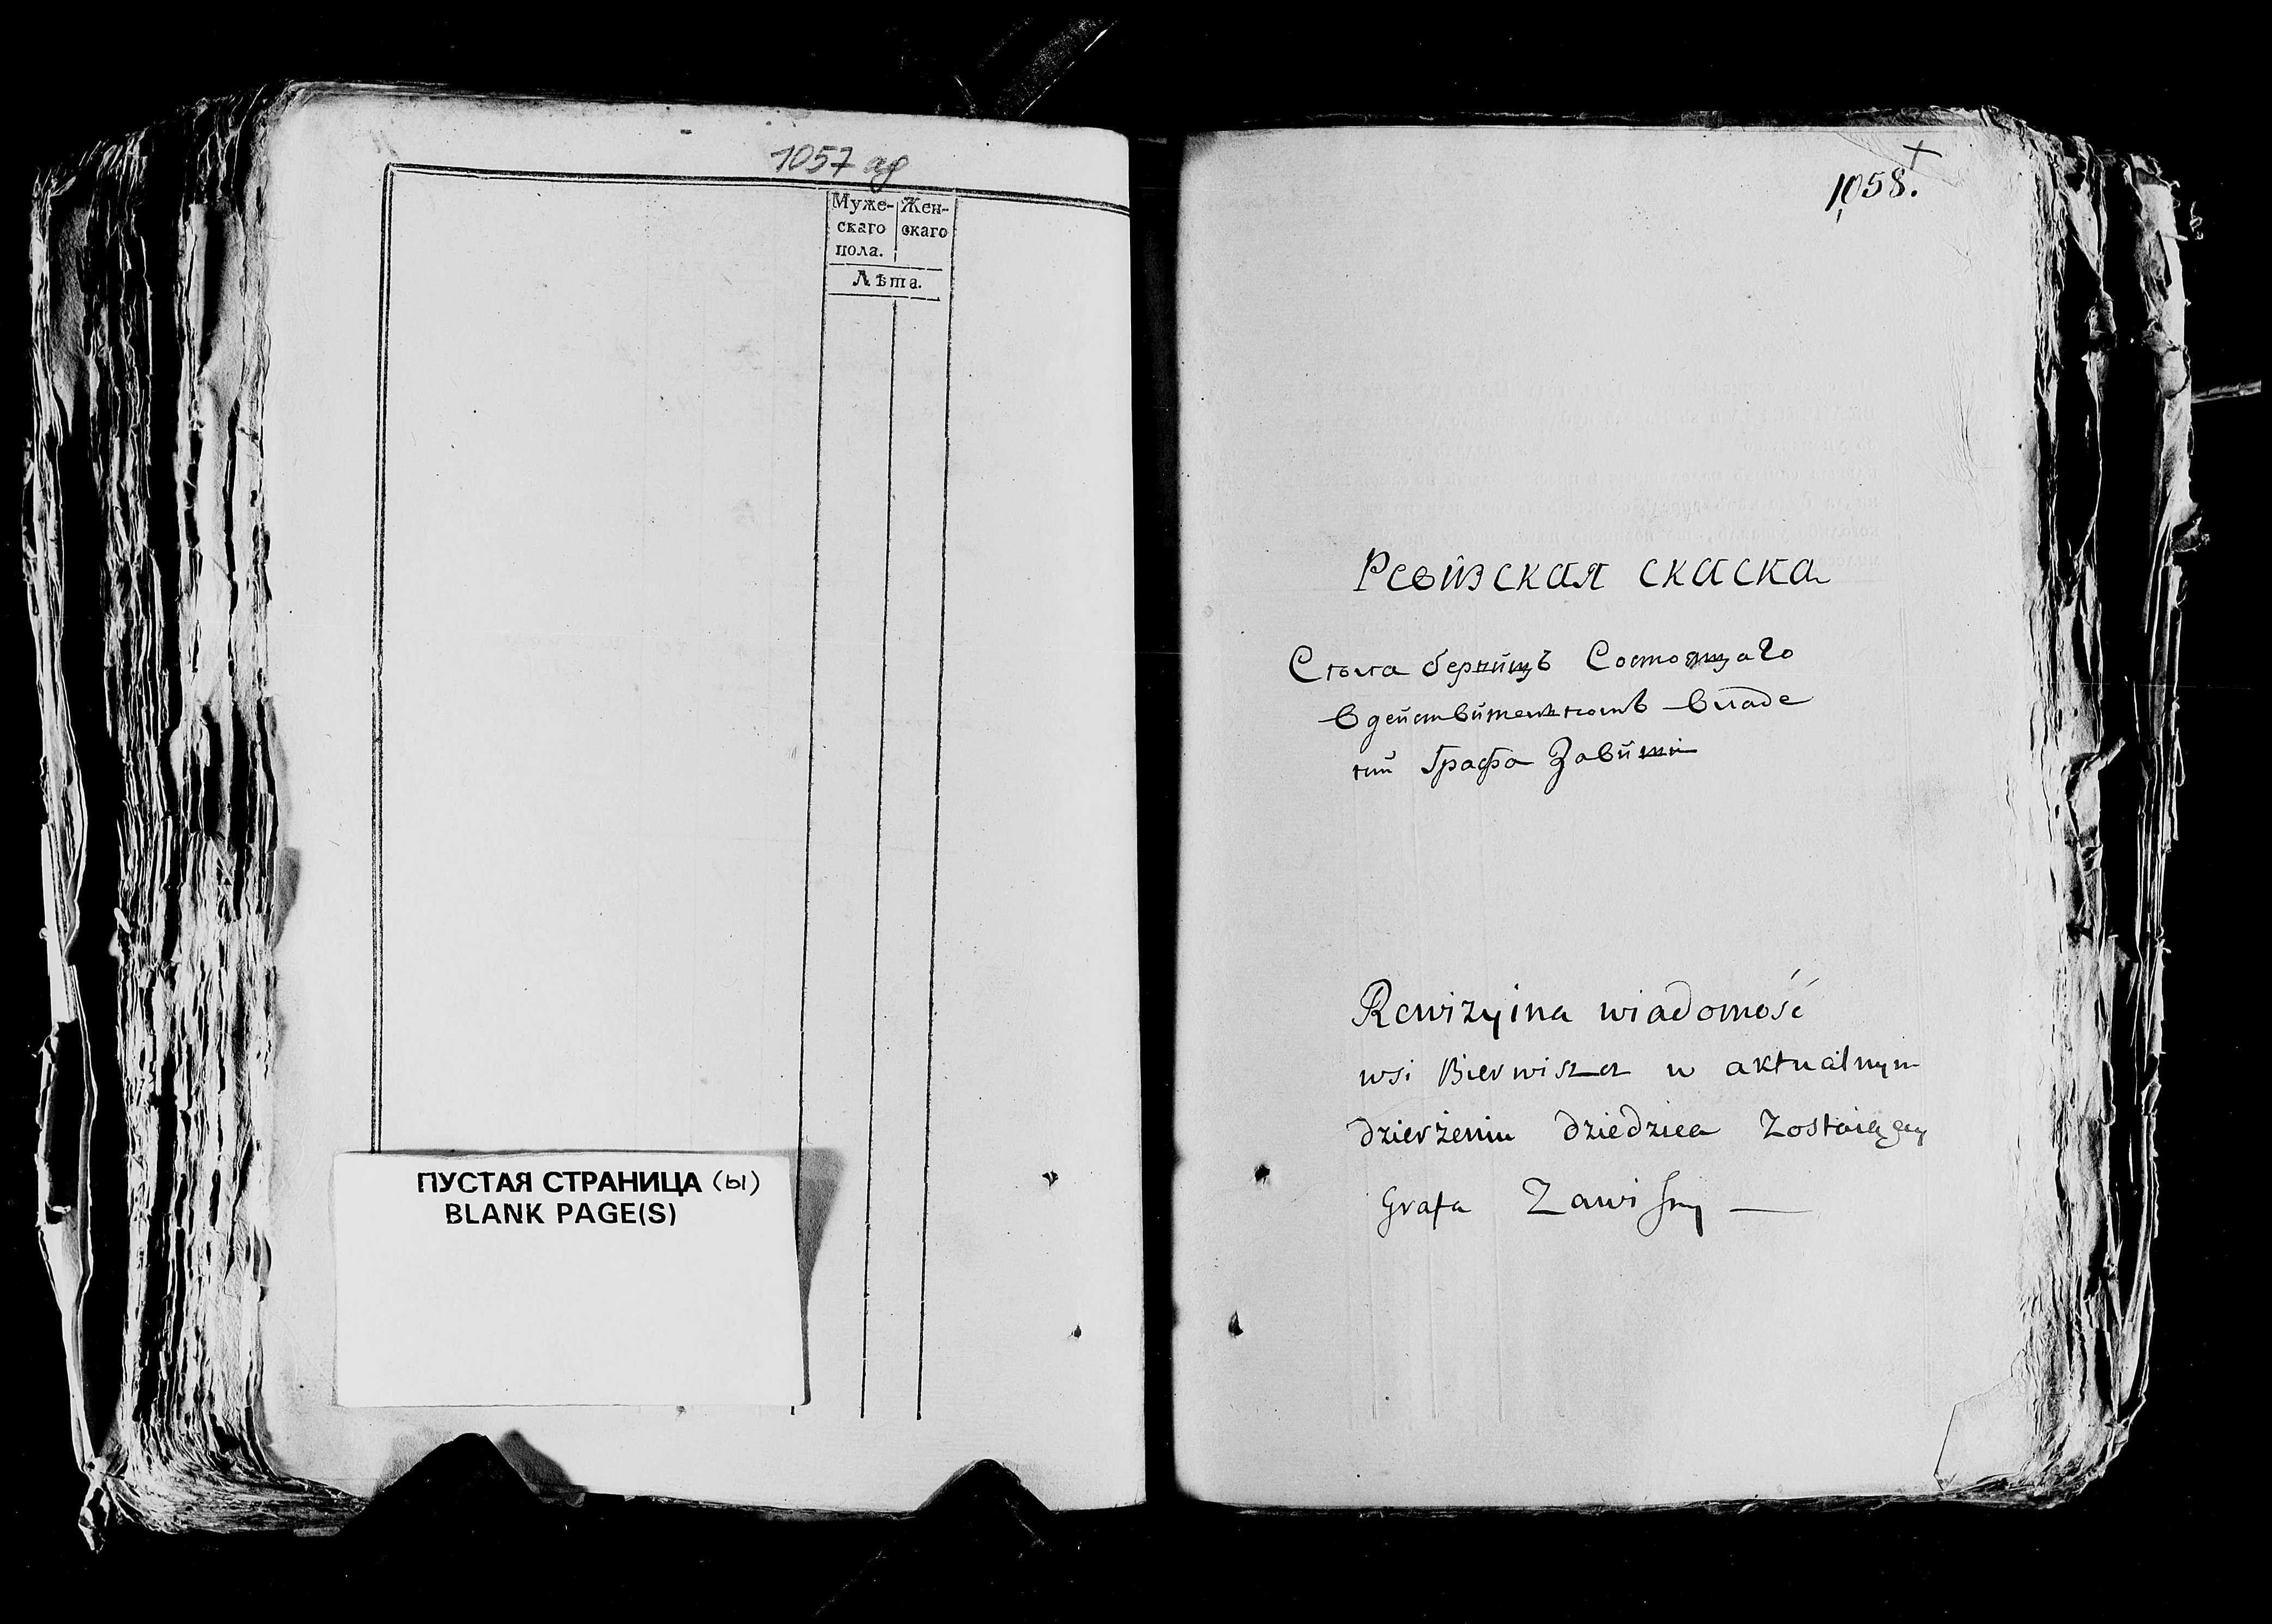 1057 ад
Муже- Жен-
скаго скаго
пола.
Лѣта.
ПУСТАЯ СТРАНИЦА (ы)
BLANK PAGE(S)
1058.
Ревизская скаска
Состоящаго
в действителномъ владе
нии Графа Завиши
Rewizyina wiadomość
wsi w aktualnym
dzierżeniu dziedzica Zostaiącey
Grafa Zawiszy